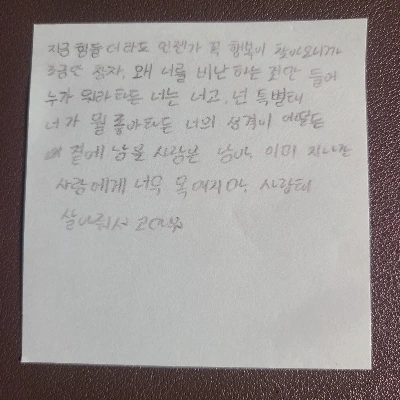 지금 힘들더라도 언젠가 꼭 행복이 찾아오니까
조금만 참자. 왜 너를 비난하는 것만 들어
누가 뭐라하든 너는 너고, 넌 특별해
너가 뭘 좋아하든 너의 성격이 어떻든
네 곁에 남을 사람은 남아. 이미 지나간
사람에게 너무 목매지마. 사랑해
살아줘서 고마워